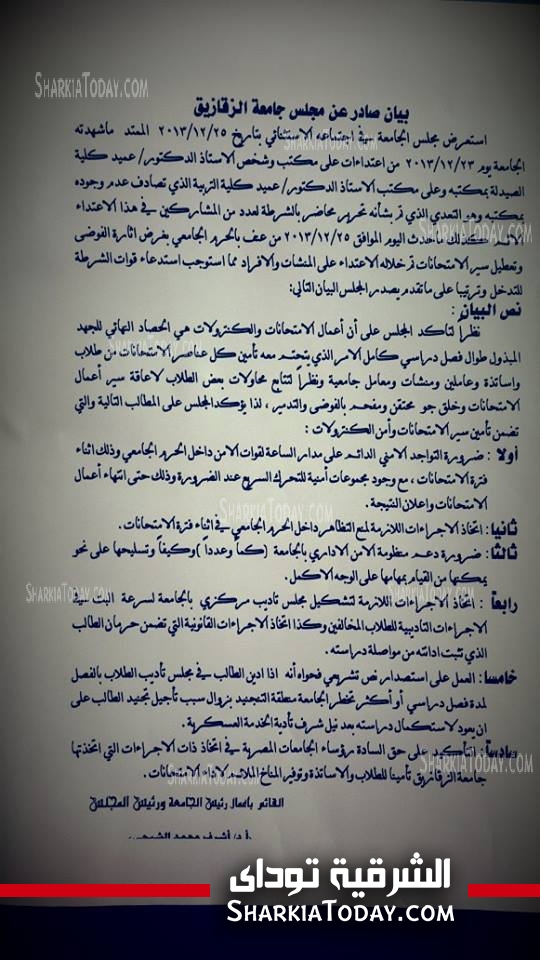 SHARKIATODAY.COM
بيان صادر عن مجلس جامعة الزقازيق
استعرض مجلس الجامعة في اجتماعه الاستثنائي بتاريخ ٢٠١٣/١٢/٢٥ الممتد ماشهدته
الجامعة يوم ٢٠١٣/١٢/٢٣ من اعتداءات على مكتب وشخص الاستاذ الدكتور/ عميد كلية
الصيدلة بمكتبه وعلى مكتب الاستاذ الدكتور/ عميد كلية التربية الذي تصادف عدم وجوده
بمكتبه وهو التعدي الذي تم بشأنه تحرير محاضر بالشرطة لعدد من المشاركين في هذا الاعتداء
وكذلك ماحدث اليوم الموافق ٢٠١٣/١٢/٢٥ من عنف بالحرم الجامعي بغرض اثارة الفوضى
وتعطيل سير الامتحانات تم خلاله الاعتداء على المنشات والافراد مما استوجب استدعاء قوات الشرطة
للتدخل وترتيبا على ماتقدم يصدر المجلس البيان التالي:
نص البيان :
نظراً لتأكد المجلس على أن أعمال الامتحانات والكنترولات هي الحصاد النهائي للجهد
المبذول طوال فصل دراسي كامل الامر الذي يتحتم معه تأمين كل عناصر الامتحانات من طلاب
واساتذة وعاملين ومنشات ومعامل جامعية ونظراً لتتابع محاولات بعض الطلاب لاعاقة سير أعمال
الامتحانات وخلق جو محتقن ومفعم بالفوضى والتدمير ، لذا يؤكد المجلس على المطالب التالية والتي
تضمن تأمين سير الامتحانات وأمن الكنترولات :
أولاً : ضرورة التواجد الامني الدائم على مدار الساعة لقوات الامن داخل الحرم الجامعي وذلك اثناء
فترة الامتحانات ، مع وجود مجموعات أمنية للتحرك السريع عند الضرورة وذلك حتى انتهاء أعمال
الامتحانات واعلان النتيجة.
ثانيا : اتخاذ الاجراءات اللازمة لمنع التظاهر داخل الحرم الجامعي في اثناء فترة الامتحانات.
ثالثا : ضرورة دعم منظومة الامن الاداري بالجامعة (كماً وعدداً) وكيفاً وتسليحها على نحو
يمكنها من القيام بمهامها على الوجه الاكمل.
رابعاً : اتخاذ الاجراءات اللازمة لتشكيل مجلس تاديب مركزي بالجامعة لسرعة البت في
الاجراءات التاديبية للطلاب المخالفين وكذا اتخاذ الاجراءات القانونية التي تضمن حرمان الطالب
الذي تثبت ادانته من مواصلة دراسته.
خامسا : العمل على استصدار نص تشريعي فحواه أنه اذا ادين الطالب في مجلس تأديب الطلاب بالفصل
لمدة فصل دراسي أو أكثر تخطر الجامعة منطقة التجنيد بزوال سبب تأجيل تجنيد الطالب على
ان يعود لاستكمال دراسته بعد نيل شرف تأدية الخدمة العسكرية .
سادساً : التأكيد على حق السادة رؤساء الجامعات المصرية في اتخاذ ذات الاجراءات التي اتخذتها
جامعة الزقازيق تأمينا للطلاب والاساتذة وتوفير المناخ الملائم لاداء الامتحانات.
القائم باعمال رئيس الجامعة ورئيس المجلس
أ.د/ أشرف محمد
الشرقية توداى
SHARKIATODAY.COM